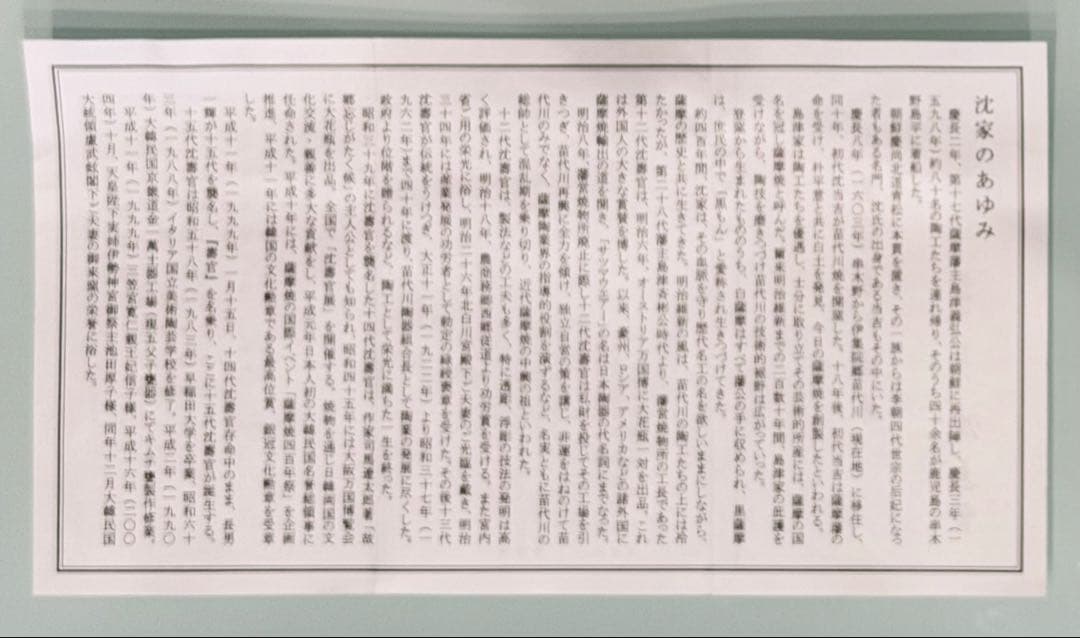 沈家のあゆみ
慶長二年、第十七代薩摩藩主島津義弘公は朝鮮に再出陣し、慶長三年（一
五九八年）約八十名の陶工たちを連れ帰り、そのうち四十余名が鹿児島の串木
野島平に着船した。
朝鮮慶尚北道青松に本貫を置き、その一族からは李朝四代世宗の后妃になっ
た者もある名門、沈氏の出身である当吉もその中にいた。
慶長八年（一六〇三年）串木野から伊集院郷苗代川（現在地）に移住し、
同十年、初代沈当吉が苗代川焼を開窯。た。十八年後、初代当吉は薩摩藩の
命を受け、朴平意と共に白土を発見、今日の薩摩焼を創製したといわれる。
島津家は陶工たちを優遇し、士分に取り立てその芸術的所産には、薩摩の国
名を冠し薩摩焼と呼んだ。爾来明治維新までの二百数十年間、島津家の庇護を
受けながら、陶技を磨きつづけ苗代川の技術的裾野は広がっていった。
登窯から生みだされたもののうち、白薩摩はすべて藩公の手に収められ、黒薩摩
は、庶民の中で「黒もん」と愛称され生きつづけてきた。
約四百年間、沈家は、その血脈を守り歴代名工の名を欲しいままにしながら、
薩摩の歴史と共に生きてきた。明治維新の嵐は、苗代川の陶工たちの上には冷
たかったが、第二十八代藩主島津斉彬公時代より、藩営焼物所の工長であった
第十二代沈壽官は、明治六年、オーストリア万国博に大花瓶一対を出品、これ
は外国人の大きな賞賛を博した。以来、豪州、ロシア、アメリカなどの諸外国に
薩摩焼輸出の道を開き、「サツマウエアー」の名は日本陶器の代名詞にまでなった。
明治八年、藩営焼物所廃止に際し十二代沈壽官は私財を投じてその工場を引
きつぎ、苗代川再興に全力を傾け、独立自営の策を講じ、非運をはねのけて苗
代川のみでなく、薩摩陶業界の指導的役割を演ずるなど、名実ともに苗代川の
総帥として混乱期を乗り切り、近代薩摩焼の中興の祖といわれた。
十二代沈壽官は、製法などの工夫も多く、特に透彫、浮彫の技法の発明は高
く評価され、明治十八年、農商務卿西郷従道より功労賞を受ける。また宮内
省ご用の栄光に浴し、明治二十六年北白川宮殿下ご夫妻のご光臨を戴き、明治
三十四年には産業発展の功労者として勅定の緑綬褒章を受けた。その後十三代
沈壽官が伝統をうけつぎ、大正十一年（一九二二年）より昭和三十七年（一
九六二年）まで四十年に渡り、苗代川陶器組合長として陶業の発展に尽くした。
政府より位階を贈られるなど、陶工として栄光に満ちた一生を終った。
昭和三十九年に沈壽官を襲名した十四代沈壽官は、作家司馬遼太郎著「故
郷忘じがたく候」の主人公としても知られ、昭和四十五年には大阪万国博覧会
に大花瓶を出品、全国で「沈壽官展」を開催する。焼物を通じ日韓両国の文
化交流・親善に多大な貢献をし、平成元年日本人初の大韓民国名誉総領事に
任命された。平成十年には、薩摩焼の国際イベント「薩摩焼四百年祭」を企画
推進、平成十一年には韓国の文化勲章である最高位賞、銀冠文化勲章を受章
した。
平成十一年（一九九九年）一月十五日、十四代沈壽官存命中のまま、長男
一輝が十五代を襲名し、『壽官』を名乗り、ここに十五代沈壽官が誕生する。
十五代沈壽官は昭和五十八年（一九八三年）早稲田大学を卒業、昭和六十
三年（一九八八年）イタリア国立美術陶芸学校を修了。平成二年（一九九〇
年）大韓民国京畿道金一萬土器工場（現五父子甕器）にてキムチ甕製作修業。
平成十一年（一九九九年）三笠宮寛仁親王妃信子様、平成十六年（二〇〇
四年）十月、天皇陛下実姉伊勢神宮御祭主池田厚子様、同年十二月大韓民国
大統領盧武鉉閣下ご夫妻の御来窯の栄誉に浴した。